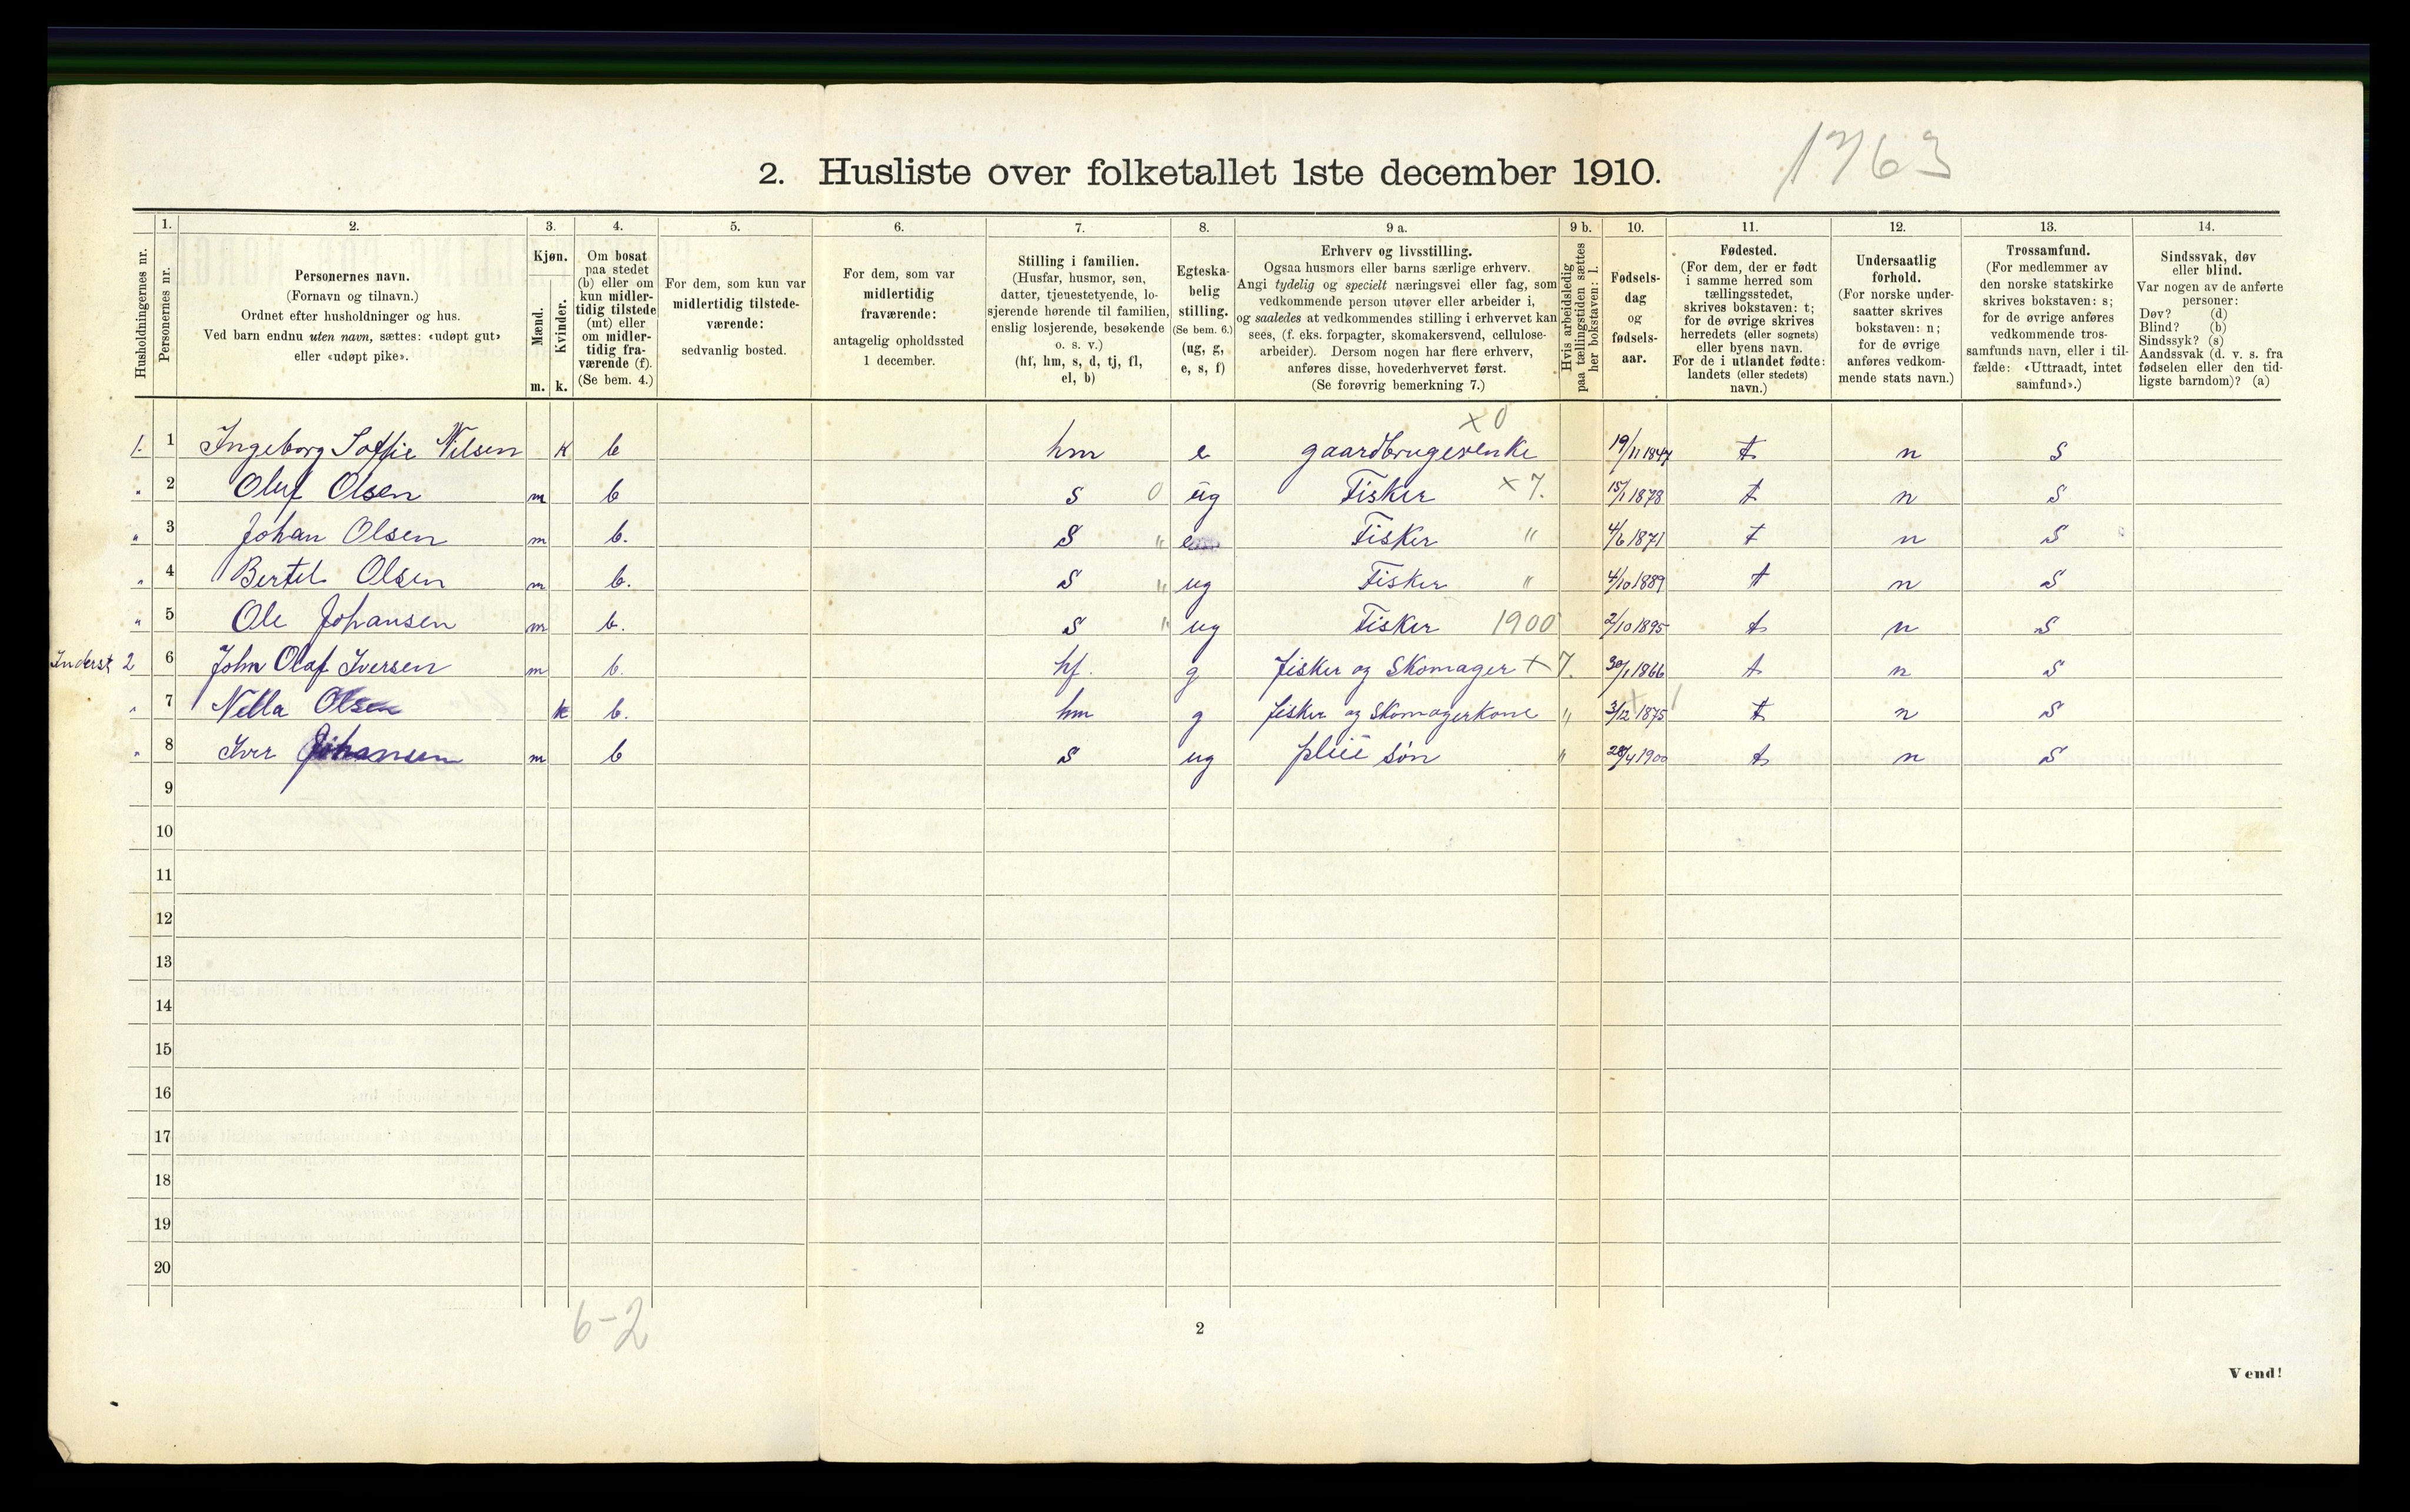 1763
2. Husliste over folketallet 1ste december 1910.
Husholdningernes nr.
1. Personernes nr.
2. Personernes navn. (Fornavn og tilnavn.) Ordnet efter husholdninger og hus. Ved barn endnu uten navn, sættes: «udøpt gut» eller «udøpt pike».
3. Kjøn. Mænd. m. Kvinder. k.
4. Om bosat paa stedet (b) eller om kun midlertidig tilstede (mt) eller om midlertidig fraværende (f). (Se bem. 4.)
5. For dem, som kun var midlertidig tilstedeværende: sedvanlig bosted.
6. For dem, som var midlertidig fraværende: antagelig opholdssted 1 december.
7. Stilling i familien. (Husfar, husmor, søn, datter, tjenestetyende, losjerende hørende til familien, enslig losjerende, besøkende o. s. v.) (hf, hm, s, d, tj, fl, el, b)
8. Egteskabelig stilling. (Se bem. 6.) (ug, g, e, s, f)
9 a. Erhverv og livsstilling. Ogsaa husmors eller barns særlige erhverv. Angi tydelig og specielt næringsvei eller fag, som vedkommende person utøver eller arbeider i, og saaledes at vedkommendes stilling i erhvervet kan sees, (f. eks. forpagter, skomakersvend, cellulosearbeider). Dersom nogen har flere erhverv, anføres disse, hovederhvervet først. (Se forøvrig bemerkning 7.)
9 b. Hvis arbeidsledig paa tællingstiden sættes her bokstaven: l.
10. Fødselsdag og fødselsaar.
11. Fødested. (For dem, der er født i samme herred som tællingsstedet, skrives bokstaven: t; for de øvrige skrives herredets (eller sognets) eller byens navn. For de i utlandet fødte: landets (eller stedets) navn.)
12. Undersaatlig forhold. (For norske undersaatter skrives bokstaven: n; for de øvrige anføres vedkommende stats navn.)
13. Trossamfund. (For medlemmer av den norske statskirke skrives bokstaven: s; for de øvrige anføres vedkommende trossamfunds navn, eller i tilfælde: «Uttraadt, intet samfund».)
14. Sindssvak, døv eller blind. Var nogen av de anførte personer: Døv? (d) Blind? (b) Sindssyk? (s) Aandssvak (d. v. s. fra fødselen eller den tidligste barndom)? (a)
1. 1 Ingeborg Soffie Nilsen k b hm e gaardbrugerenke x0 19/11 1847 t n s
" 2 Oluf Olsen m b s 0 ug Fisker x7. 15/1 1878 t n s
" 3 Johan Olsen m b. s " e Fisker " 4/6 1871 t n s
" 4 Bertel Olsen m b. s " ug Fisker " 4/10 1889 t n s
" 5 Ole Johansen m b. s " ug Fisker 1900 2/10 1895 t n s
Inderst 2 6 John Olaf Iversen m b. hf. g fisker og Skomager x7. 30/1 1866 t n s
" 7 Nella Olsen k b. hm g fisker og Skomagerkone " 3/12 1875 t n s
" 8 Iver Johansen m b s ug pleie søn " 28/4 1900 t n s
9
10
11
12
13
14
15
16
17
18
19
20
6-2
2
Vend!